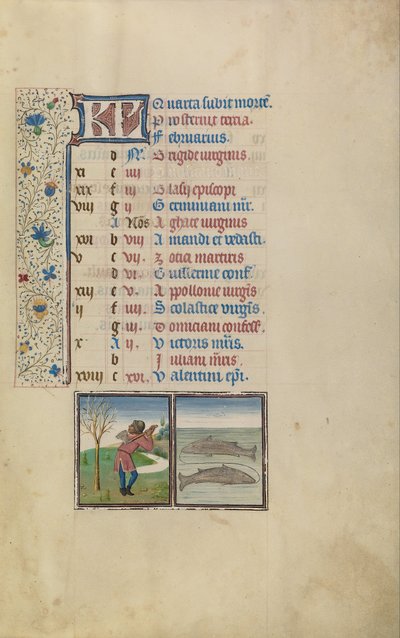 KL Quarta subit mortē.
Prosternit tercia.
Februarius.
d N. Brigide virginis.
xi e iiii
xix f iii Blasii episcopi
viii g ii Geminiani m̄r.
A Nōs Aghace virginis
xvi b viii Amandi et vedasti.
v c vii. Zotici martiris
d vi. Guillermi conf.
xiii e v. Appollonie virgīs
ii f iiii. Scolastice virgīs.
g iii. Domiciani confess.
x A ii. Victoris m̄ris.
b Iuliani m̄ris.
xviii c xvi. Valentini ep̄i.